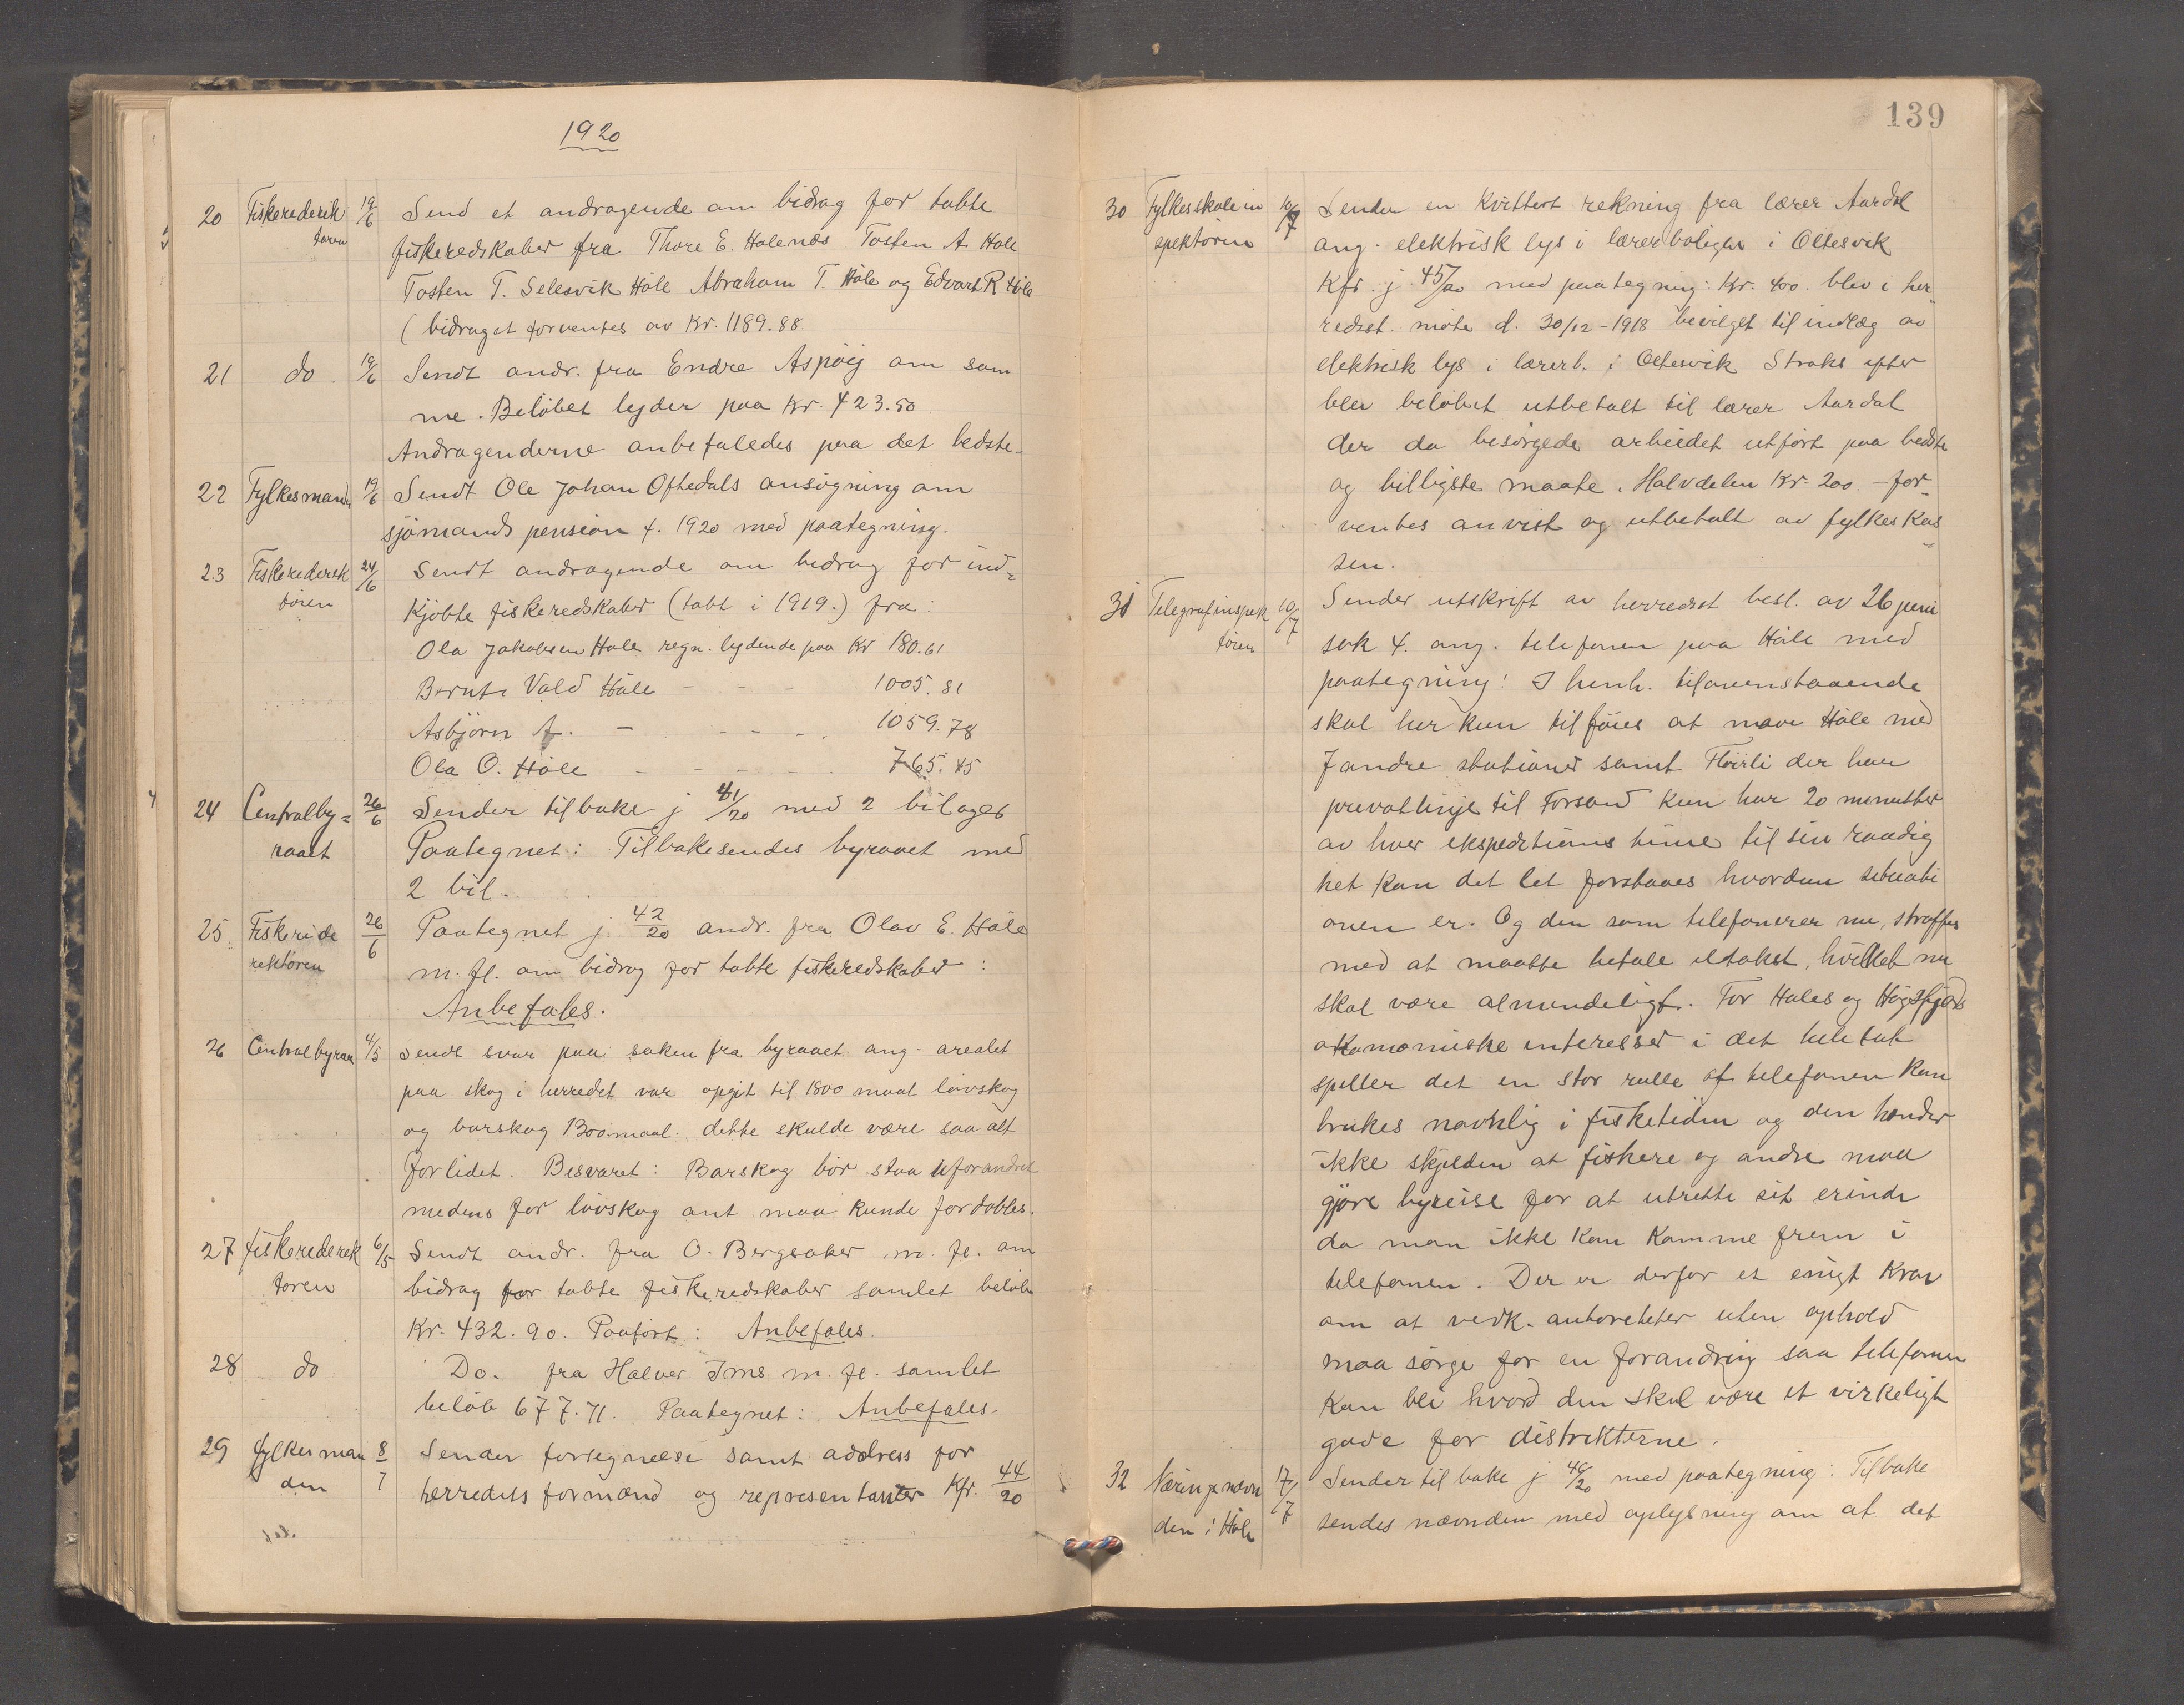 1920
20 Fiskeredirek 19/6 Send et andragende om bidrag for tabte
tøren fiskeredskaber fra Thore E. Holenæs Tosten A Hole
Tosten T. Selesvik Høle Abraham T. Høle og Edvart R Høle
( bidraget forventes av Kr. 1189.88.
21 do. 19/6 Sendt andr. fra Endre Aspøig om sam
me. Beløbet lyder paa Kr. 423.50
Andragenderne anbefaledes paa det bedste.
22 Fylkesmand 19/6 Sendt Ole Johan Oftedals ansøgning om
sjømands pension f. 1920 med paategning.
23 Fiskeredirek 24/6 Sendt andragende om bidrag for ind=
tøren kjøbte fiskeredskaber (tabt i 1919.) fra:
Ola Jakobsen Hole regn. lydende paa Kr 180.61
Bernt Vald Høle - - - 1005.81
Asbjørn A. - - - - 1059.78
Ola O. Høle - - - - 765.45
24 Centralby= 26/6 Sender tilbake j 41/20 med 2 bilager
raaet Paategnet: Tilbakesendes byraaet med
2 bil.
25. Fiskeride 26/6 Paategnet j. 42/20 andr. fra Olav E. Høle
rektøren m. fl. om bidrag for tabte fiskeredskaber :
Anbefales.
26 Centralbyraa 4/5 Sendt svar paa saken fra byraaet ang. arealet
paa skog i herredet var opgit til 1800 maal løvskog
og barskog 1300 maal. dette skulde være saa alt
forlidet. Bisvaret: Barskog bør staa uforandret
medens for løvskog ant maa kunde fordobles.
27 fiskeredirek 6/5 Sendt andr. fra O. Bergsaker m. fl. om
toren bidrag for tabte fiskeredskaber samlet beløb
Kr. 432.90. Paaført: Anbefales.
28 do Do. fra Halver Ims m. fl. samlet
beløb 677.71. Paategnet: Anbefales.
29 fylkesman 8/7 Sender fortegnelse samt address for
den herredets formænd og representanter Kfr. 44/20
139
30 Fylkesskolein 10/7 Sender en kvittert rekning fra lærer Aardal
spektøren ang. elektrisk lys i lærerboligen i Oltesvik
Kfr. j 45/20 med paategning: Kr. 400. blev i her
redsst. møte d. 30/12-1918 bevilget til indlæg av
elektrisk lys i lærerb. i Oltesvik Straks efter
blev beløbet utbetalt til lærer Aardal
der da besørgede arbeidet utført paa bedste
og billigste maate. Halvdelen Kr. 200. - for=
ventes anvist og utbetalt av fylkeskas
sen.
31 Telegrafinspek 10/7 Sender utskrift av herredsst besl. av 26 juni
tøren sak 4. ang. telefonen paa Høle med
paategning: I henh. til ovenstaaende
skal her kun tilføies at naar Høle med
7 andre stationer samt Fløirli der har
prevatlinje til Forsand kun har 20 minutter
av hver ekspeditions time til sin raadig
het kan det let forstaaes hvordan situati
onen er. Og den som telefonerer nu, straffes
med at maatte betale iltakst, hvilket nu
skal være almindeligt. For Høles og Høgsfjords
økonomiske interesser i det hele tat
spiller det en stor rulle at telefonen kan
brukes navnlig i fisketiden og den hænder
ikke skjelden at fiskere og andre maa
gjøre byreise for at utrette sit erinde
da man ikke kan komme frem i
telefonen. Der er derfor et enigt krav
om at vedk. autoreteter uten ophold
maa sørge for en forandring saa telefonen
kan bli hvad den skal være et virkeligt
gode for distrikterne.
32 Næringsnævn 17/7 Sender tilbake j 46/20 med paategning: Tilbake
den i Høle sendes nævnden med oplysning om at det